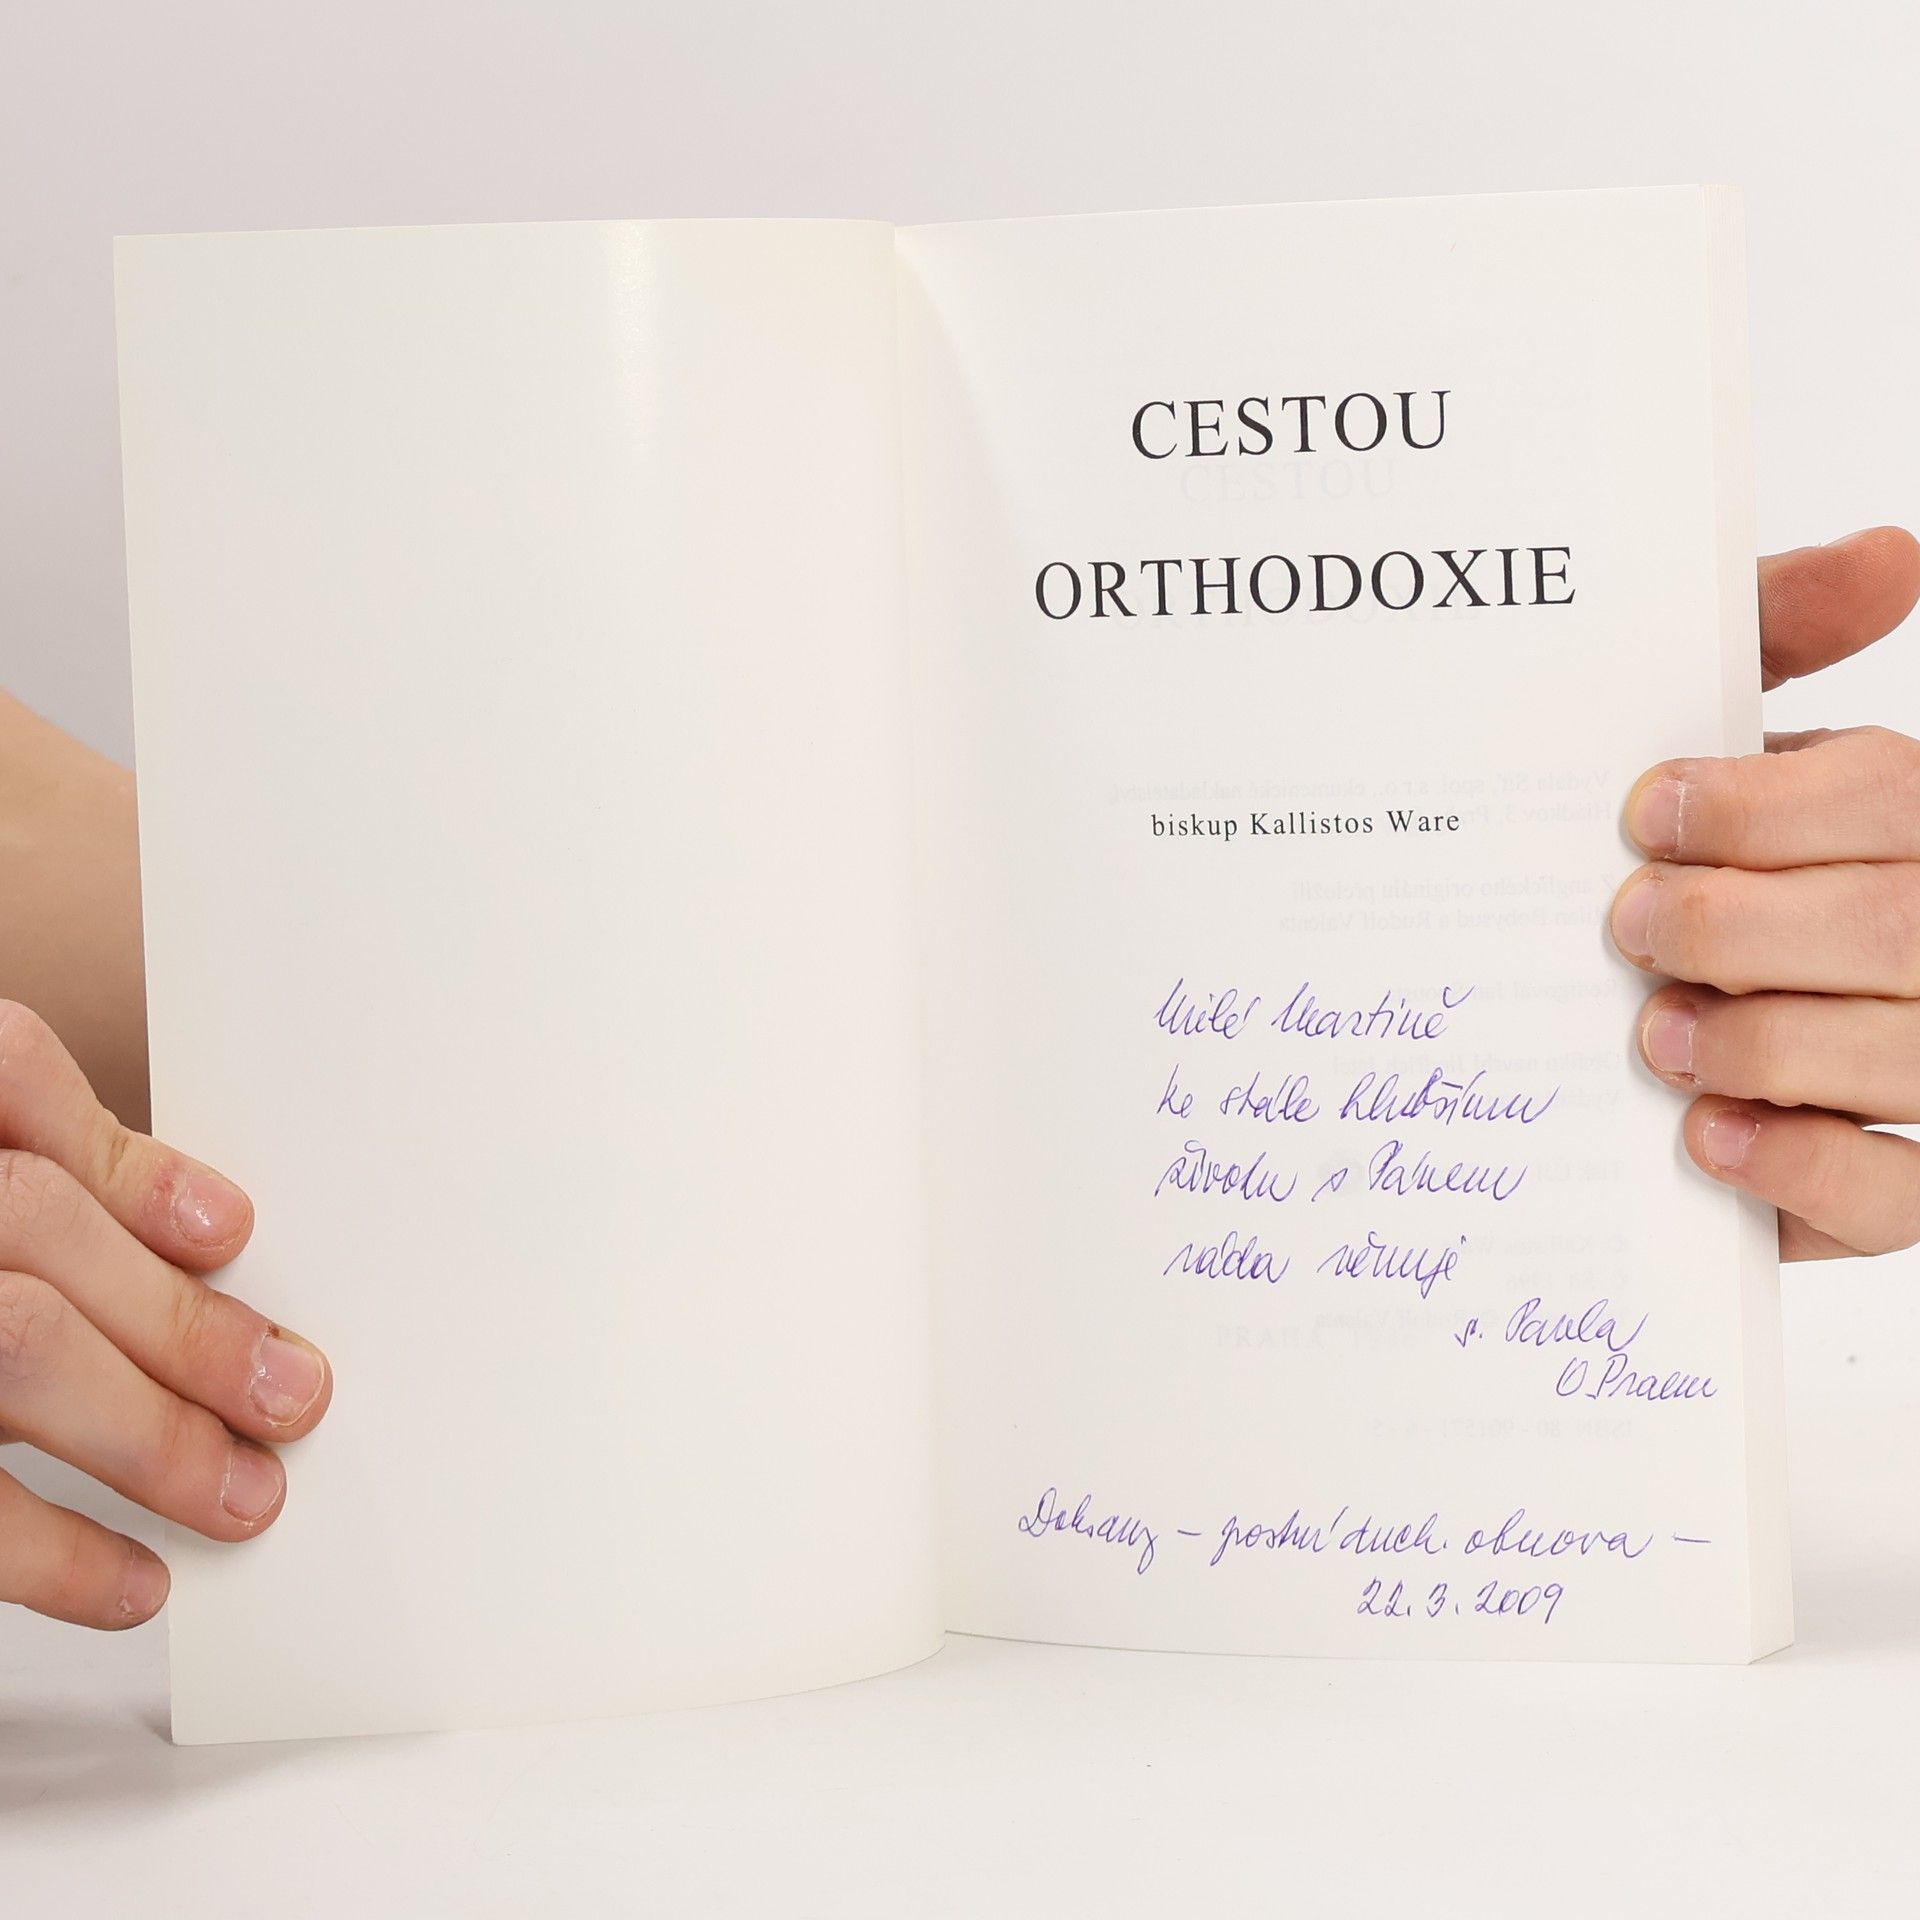 CESTOU
ORTHODOXIE
biskup Kallistos Ware
Milé Martině
ke stále hlubšímu
životu s Pánem
ráda věnuje
s. Pavla
O.Praem
Doksany – postní duch. obnova –
22. 3. 2009